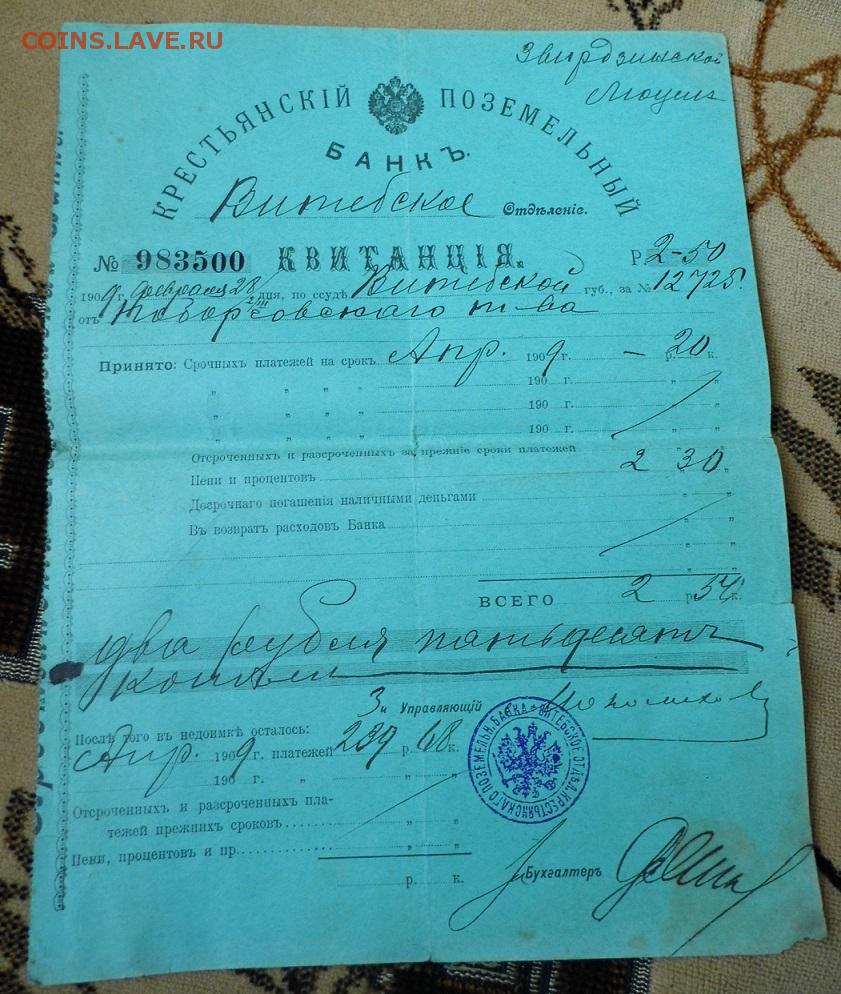 COINS.LAVE.RU
Звирдзинской
КРЕСТЬЯНСКІЙ ПОЗЕМЕЛЬНЫЙ
БАНКЪ.
Витебское Отдѣленіе.
№ 983500 КВИТАНЦІЯ. Р. 2-50
1909 г. февраля 28 дня, по ссудѣ Витебской губ., за № 12725.
отъ т-ва
Принято: Срочныхъ платежей на срокъ Апр. 1909 г. — р. 20 к.
„ „ „ „ 190 г. „ „
„ „ „ „ 190 г. „ „
„ „ „ „ 190 г. „ „
Отсроченныхъ и разсроченныхъ за прежніе сроки платежей „ „
Пени и процентовъ 2 „ 30 „
Досрочнаго погашенія наличными деньгами „ „
Въ возвратъ расходовъ Банка „ „
„ „
ВСЕГО 2 р. 50 к.
два рубля пятьдесятъ
копѣекъ
З и Управляющій
Послѣ того въ недоимкѣ осталось:
Апр. 1909 г. платежей 239 р. 68 к.
190 г. „ „ „
Отсроченныхъ и разсроченныхъ пла-
тежей прежнихъ сроковъ „ „
Пени, процентовъ и пр. „ „
р. к.
ВИТЕБСКОЕ ОТДѢЛ. КРЕСТЬЯНСКАГО ПОЗЕМЕЛЬН. БАНКА
Бухгалтеръ